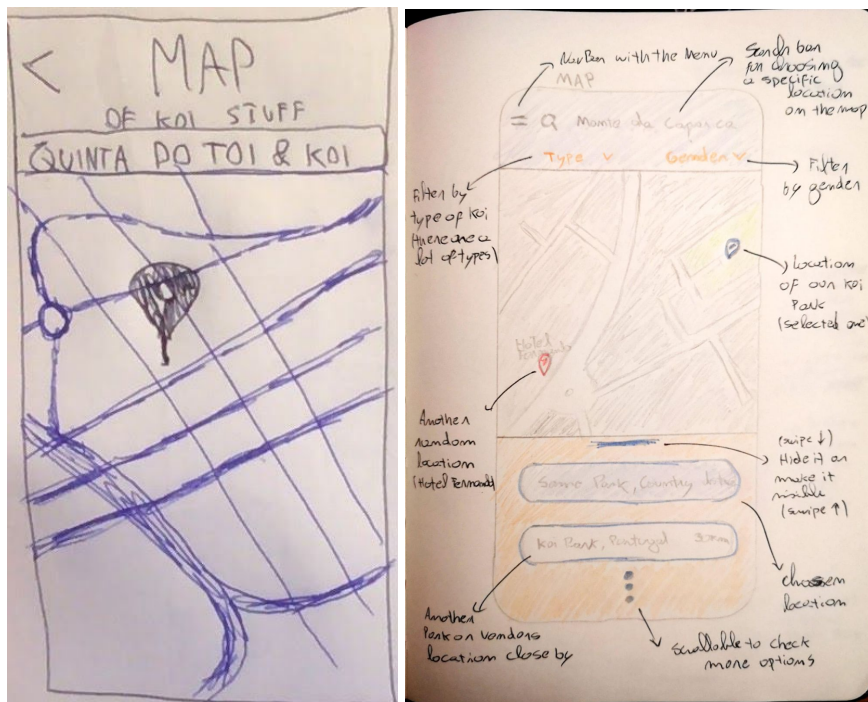 <
MAP
OF KOI STUFF
QUINTA DO TOI & KOI
NavBar with the Menu
MAP
Search bar
for choosing
a specific
location
on the map
Q Monte da Caparica
Type v
Gender v
Filter by
type of koi
(there are a
lot of types)
Filter
by gender
Location
of our Koi
Park
(selected one)
Hotel
Fernando
Another
random
location
(Hotel Fernando)
(swipe ↓)
Hide it or
make it
visible
(swipe ↑)
Some Park, Country
Koi Park, Portugal 30min
chosen
location
Another
Park or Vendors
location close by
Scrollable to check
more options